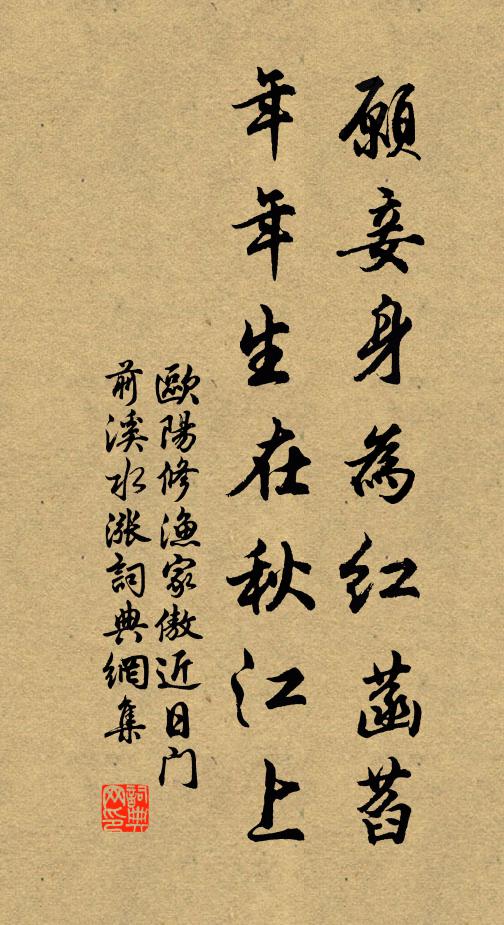 願妾身為紅菡萏
年年生在秋江上
歐陽修漁家傲近日门
前溪水漲詞典網集